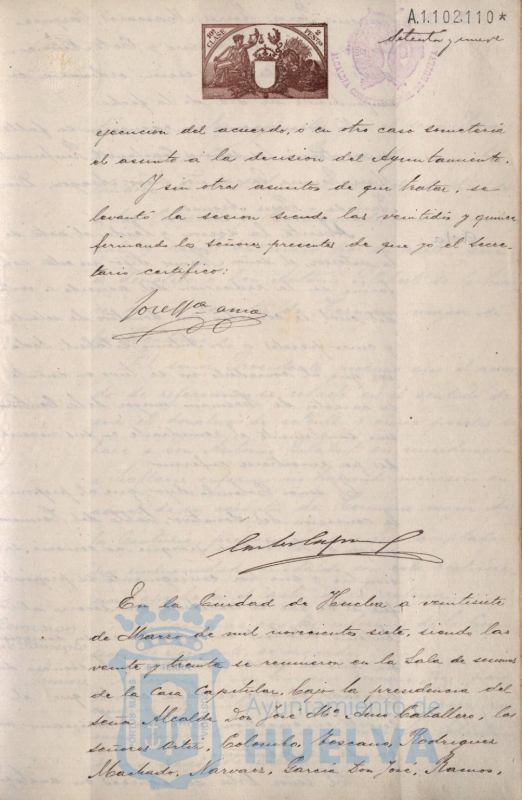 10ª CLASE
2 PESETAS
A.1.102.110*
Setenta y nueve
ALCALDIA
ejecucion del acuerdo, ó en otro caso someteria
el asunto á la decision del Ayuntamiento.
Y sin otros asuntos de que tratar, se
levantó la sesion siendo las veintidos y quince
firmando los señores presentes de que yo el Secre-
tario certifico:
En la Ciudad de Huelva á veintisiete
de Marzo de mil novecientos siete, siendo las
veinte y treinta se reunieron en la Sala de sesiones
de la Casa Capitular, bajo la presidencia del
señor Alcalde Don José Mª Amo Caballero, los
señores Ortiz, Colombo, Toscano, Rodriguez
Machado, Narvaez, Garcia Don José, Ramos,
Ayuntamiento de
HUELVA